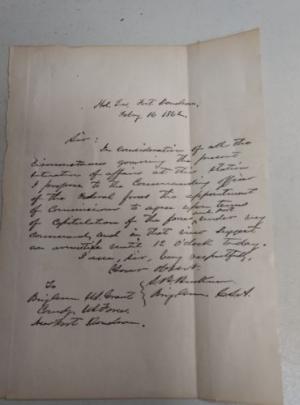 Hd. Qrs. Fort Donelson,
Feby 16 1862.
Sir:
In consideration of all the
circumstances governing the present
situation of affairs at this station
I propose to the Commanding Officer
of the Federal forces the appointment
of Commissioners to agree upon terms
of capitulation of the forces and post under my
command, and in that view suggest
an armistice until 12 O'clock to-day.
I am, sir, very respectfully,
Your Obt. Servt.
S. B. Buckner
Brig Genl C.S.A.
To
Brig Genl U.S. Grant
Comdg. US Forces
Near Fort Donelson.